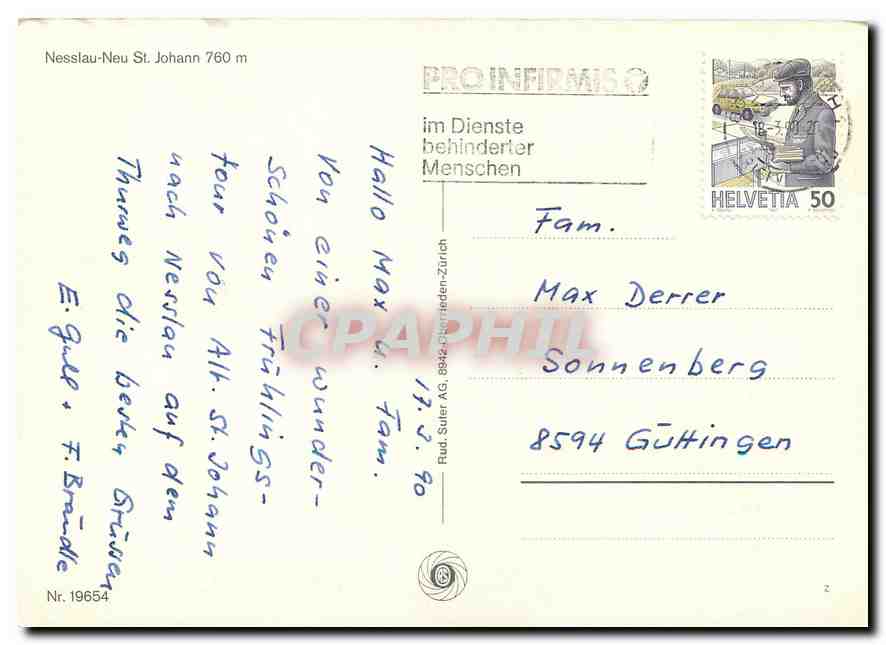 Nesslau-Neu St. Johann 760 m
PRO INFIRMIS
im Dienste
behinderter
Menschen
18-3.90-20
HELVETIA 50
17.3.90
Hallo Max u. Fam.
Von einer wunder-
schönen Frühlings-
tour von Alt. St. Johann
nach Nesslau auf dem
Thurweg die besten Grüssen
E. Gull + F. Brändle
Rud. Suter AG, 8942 Oberrieden-Zürich
Fam.
Max Derrer
Sonnenberg
8594 Güttingen
CPAPHIL
Nr. 19654
z